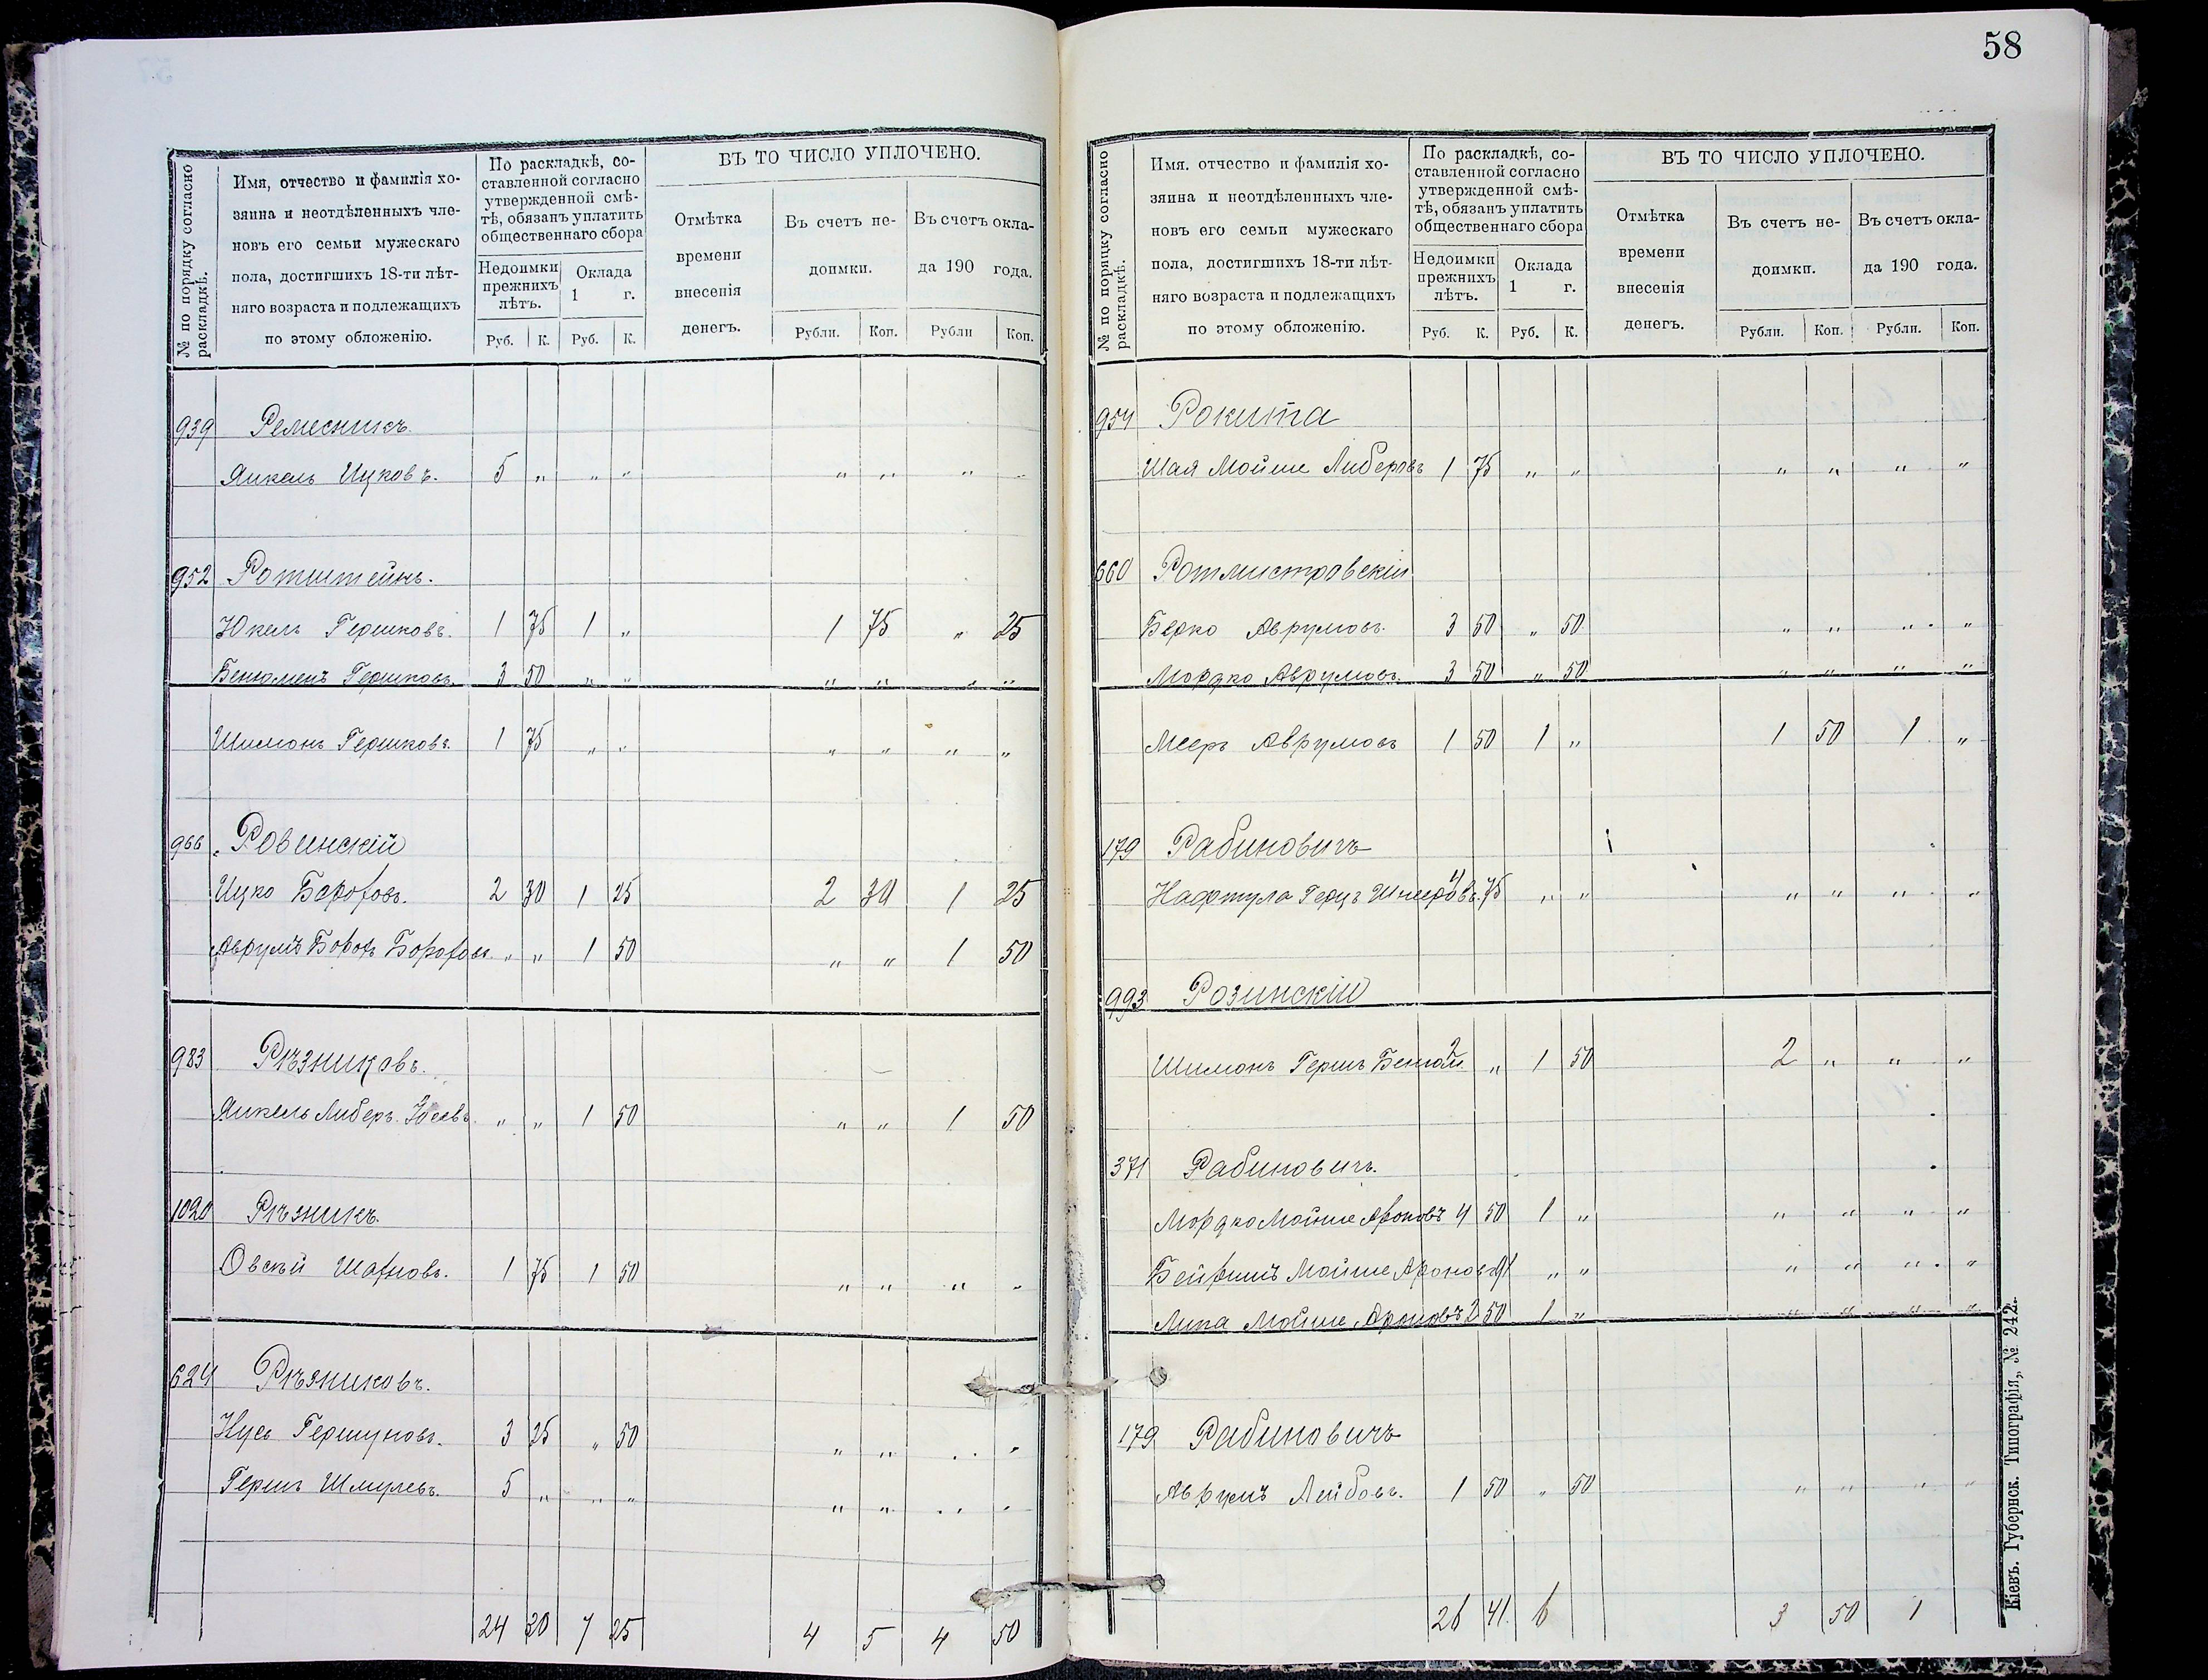 58
№ по порядку согласно раскладкѣ.
Имя, отчество и фамилія хо-
зяина и неотдѣленныхъ чле-
новъ его семьи мужескаго
пола, достигшихъ 18-ти лѣт-
няго возраста и подлежащихъ
по этому обложенію.
По раскладкѣ, со-
ставленной согласно
утвержденной смѣ-
тѣ, обязанъ уплатить
общественнаго сбора
Недоимки
прежнихъ
лѣтъ.
Оклада
1 г.
Руб. К. Руб. К.
ВЪ ТО ЧИСЛО УПЛОЧЕНО.
Отмѣтка
времени
внесенія
денегъ.
Въ счетъ не-
доимки.
Въ счетъ окла-
да 190 года.
Рубли. Коп. Рубли Коп.
939 Ремесникъ.
Янкель Ицковъ. 5 „ „ „ „ „ „ „
952 Ротштейнъ.
Юкель Гершковъ. 1 75 1 „ 1 75 „ 25
Бенюменъ Гершковъ. 3 50 „ „ „ „ „ „
Шимонъ Гершковъ. 1 75 „ „ „ „ „ „
966 Ровинскій
Ицко Борохов. 2 30 1 25 2 30 1 25
Аврумъ Борохов. „ „ 1 50 „ „ 1 50
983 Рѣзниковъ.
Янкель Либеръ „ „ 1 50 „ „ 1 50
1020 Рѣзникъ.
Овсѣй 1 75 1 50 „ „ „ „
624 Рѣзниковъ.
Нусь Гершуновъ. 3 25 „ 50 „ „ „ „
Гершъ Шмулевъ. 5 „ „ „ „ „ „ „
24 30 7 25 4 5 4 50
№ по порядку согласно раскладкѣ.
Имя, отчество и фамилія хо-
зяина и неотдѣленныхъ чле-
новъ его семьи мужескаго
пола, достигшихъ 18-ти лѣт-
няго возраста и подлежащихъ
по этому обложенію.
По раскладкѣ, со-
ставленной согласно
утвержденной смѣ-
тѣ, обязанъ уплатить
общественнаго сбора
Недоимки
прежнихъ
лѣтъ.
Оклада
1 г.
Руб. К. Руб. К.
ВЪ ТО ЧИСЛО УПЛОЧЕНО.
Отмѣтка
времени
внесенія
денегъ.
Въ счетъ не-
доимки.
Въ счетъ окла-
да 190 года.
Рубли. Коп. Рубли. Коп.
954 Рокита
Шая Мойше Либеровъ 1 75 „ „ „ „ „ „
660 Ротмистровскій
Берко Аврумовъ. 3 50 „ 50 „ „ „ „
Мордко Аврумовъ. 3 50 „ 50 „ „ „ „
Мееръ Аврумовъ 1 50 1 „ 1 50 1 „
179 Рабиновичъ
Нафтула Герцъ 4 75 „ „ „ „ „ „
993 Розинскій
Шимонъ Гершъ Бенюм. 2 „ 1 50 2 „ „ „
371 Рабиновичъ.
Мордко Мойше Ароновъ 4 50 1 „ „ „ „ „
Мойше Ароновъ „ „ „ „ „ „
Липа Мойше Ароновъ 2 50 1 „ „ „ „ „
179 Рабиновичъ
Аврумъ Лейбовъ. 1 50 „ 50 „ „ „ „
26 41 6 3 50 1
Кіевъ. Губернск. Типографія, № 242.